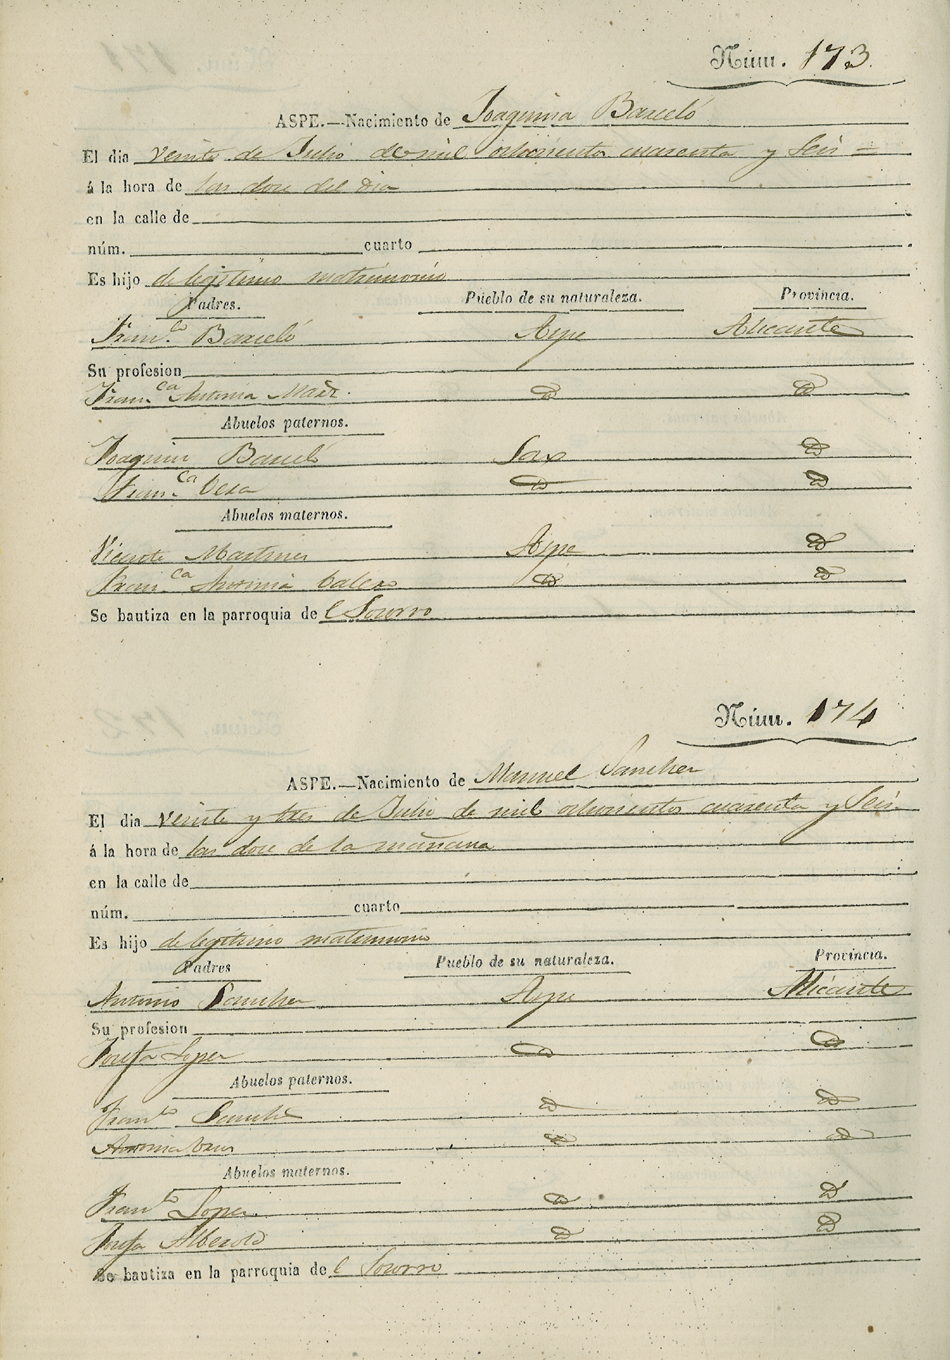 Núm. 173.
ASPE.—Nacimiento de Joaquina Barceló
El dia veinte de Julio de mil ochocientos cuarenta y Seis =
á la hora de las doce del dia
en la calle de
núm. cuarto
Es hijo de legitimo matrimonio
Padres. Pueblo de su naturaleza. Provincia.
Fran.co Barceló Aspe Alicante
Su profesion
Fran.ca Antonia Marz. D D
Abuelos paternos.
Joaquin Barceló Sax D
Fran.ca Vera D D
Abuelos maternos.
Vicente Martinez Aspe D
Fran.ca Antonia D D
Se bautiza en la parroquia de l Socorro
Núm. 174
ASPE.—Nacimiento de Manuel Sanchez
El dia veinte y tres de Julio de mil ochocientos cuarenta y Seis
á la hora de las doce de la mañana
en la calle de
núm. cuarto
Es hijo de legitimo matrimonio
Padres Pueblo de su naturaleza. Provincia.
Antonio Sanchez Aspe Alicante
Su profesion
Josefa Lopez D D
Abuelos paternos.
Fran.co Sanchez D D
Antonia D D
Abuelos maternos.
Fran.co Lopez D D
Josefa Alberola D D
Se bautiza en la parroquia de l Socorro